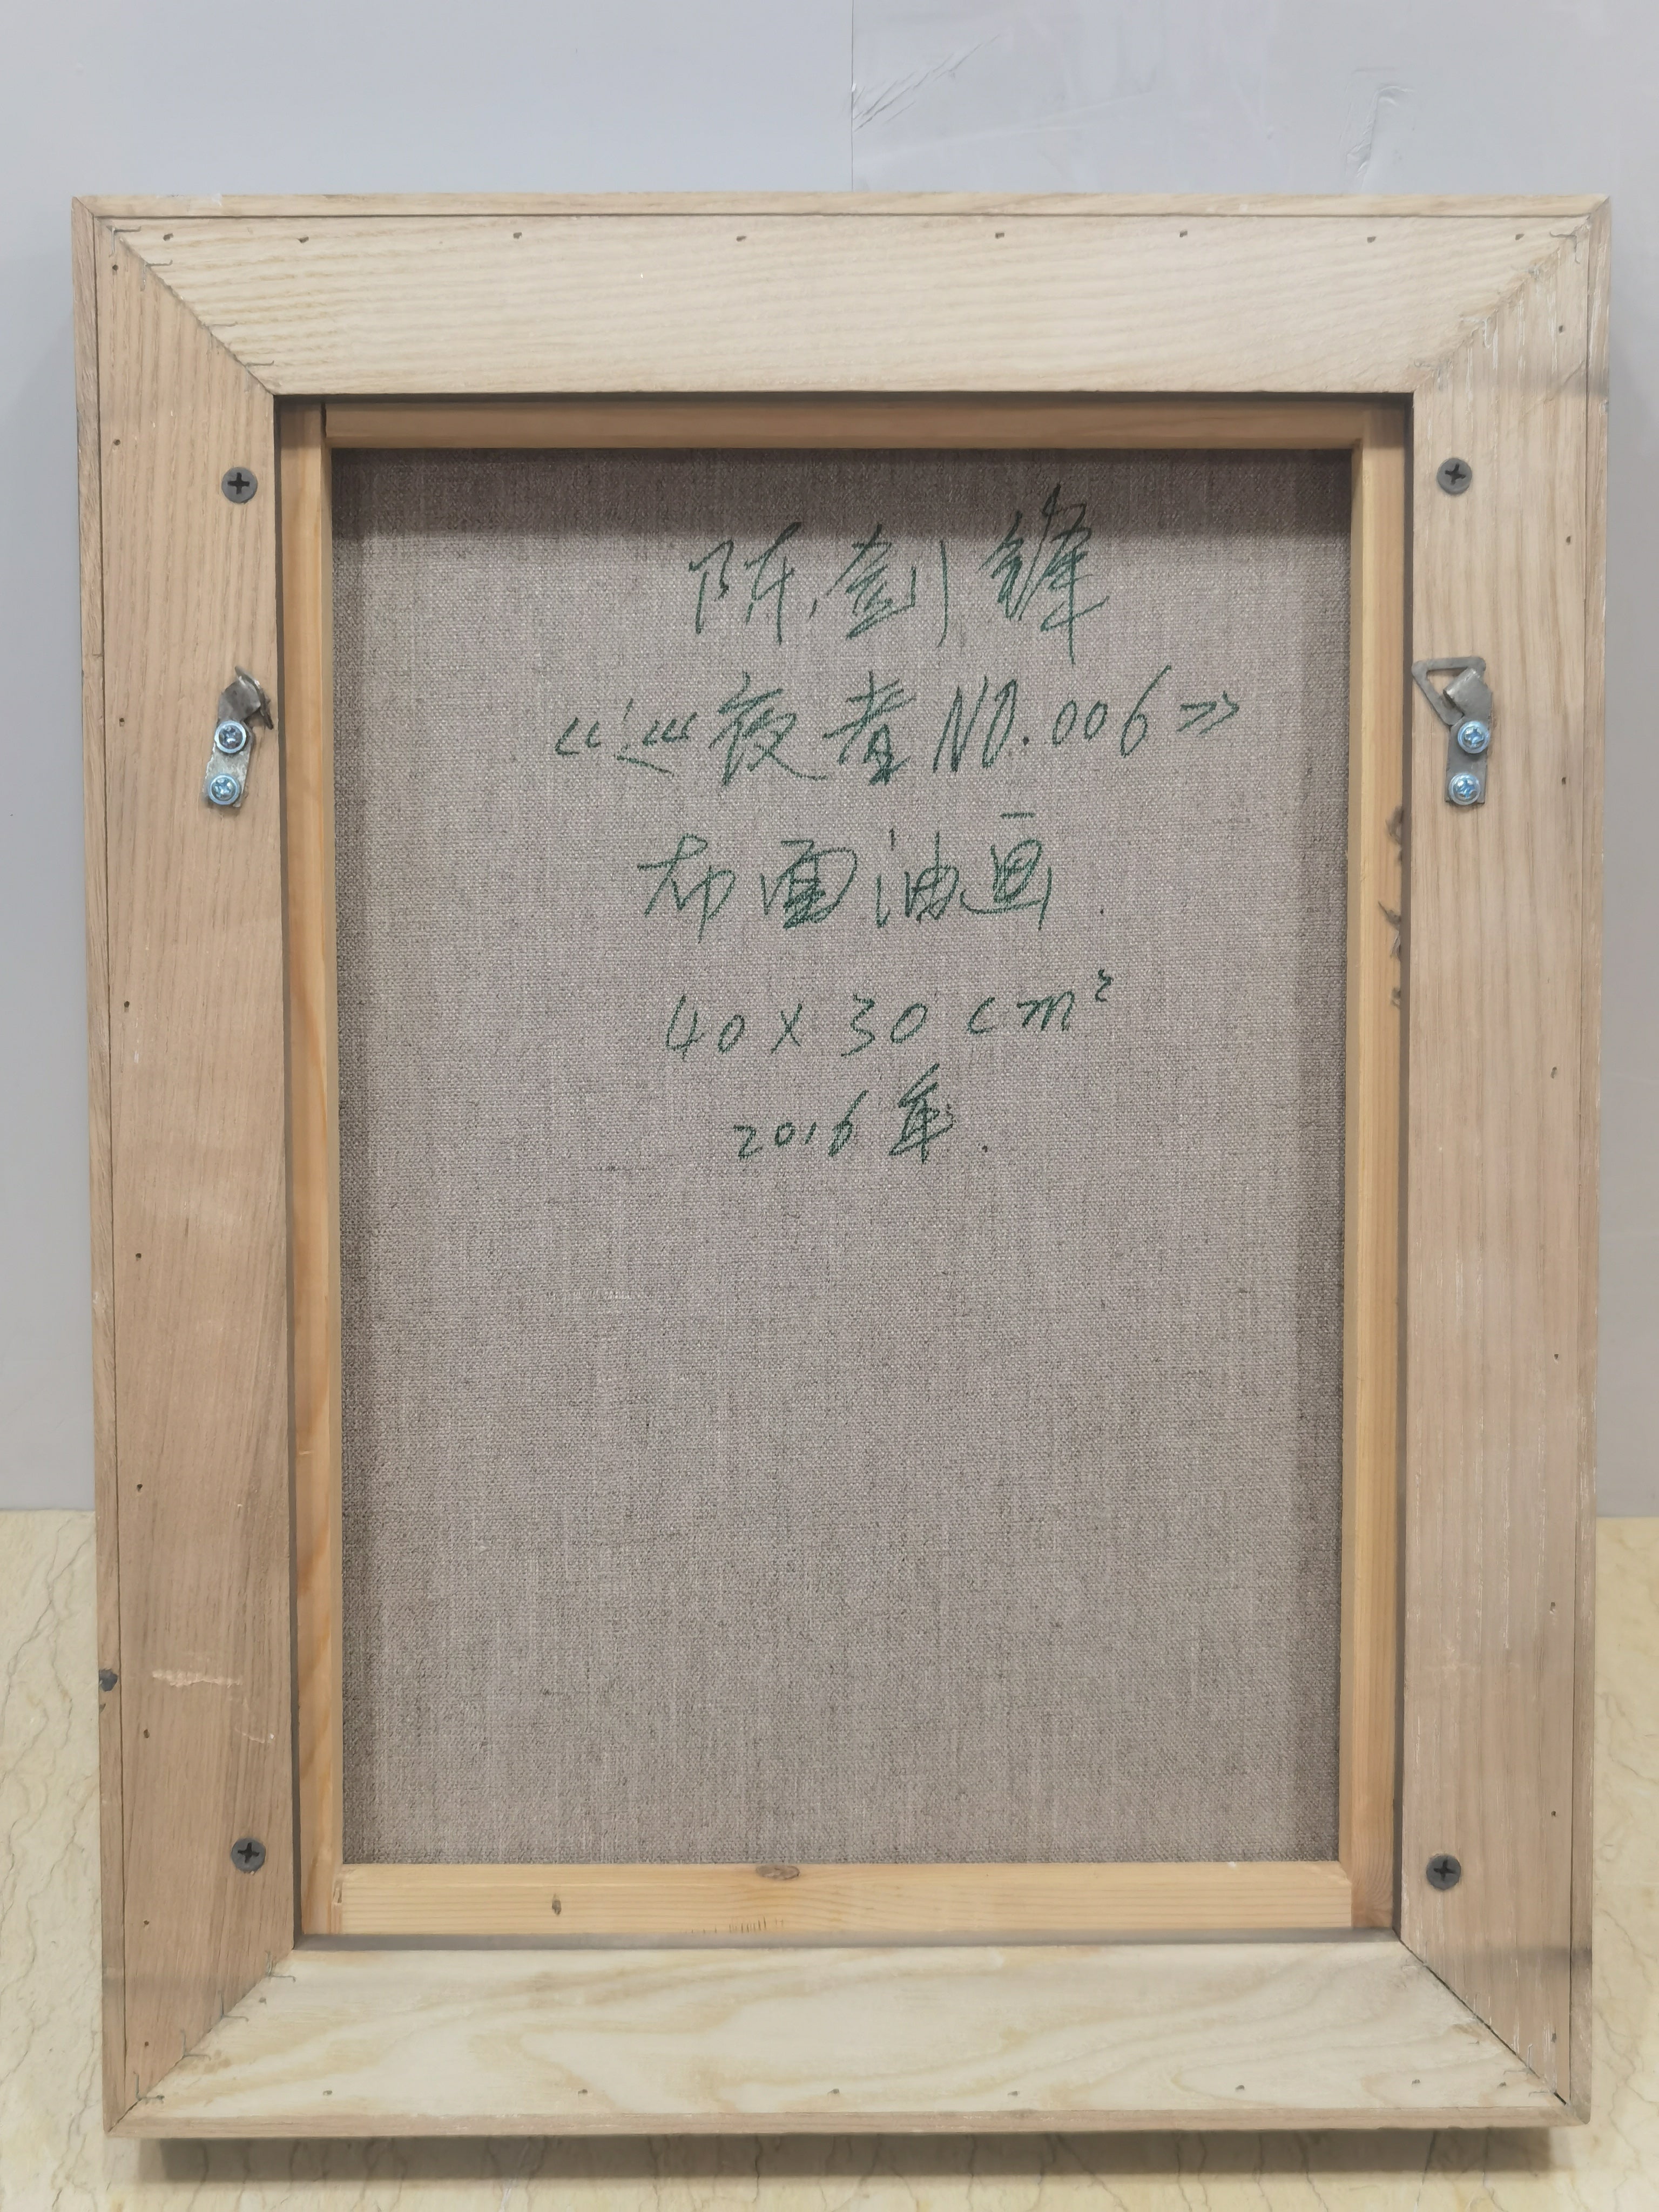 陈剑锋
《巡夜者NO.006》
布面油画
40x30cm²
2016年.